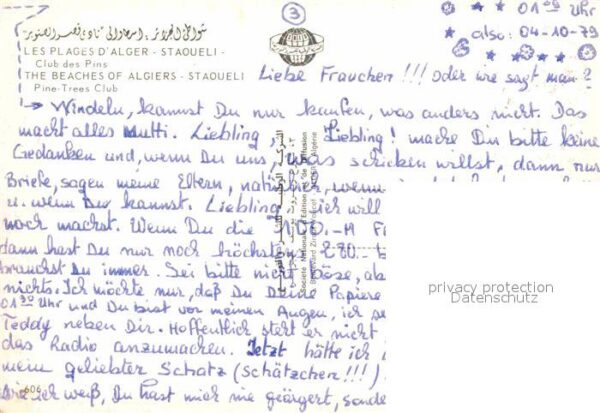 ③
01 29 Uhr
also: 04-10-79
شواطئ الجزائر: اسطاوالي نادي قصر الصنوبر
LES PLAGES D'ALGER - STAOUELI -
Club des Pins
THE BEACHES OF ALGIERS - STAOUELI
Pine-Trees Club
Liebe Frauchen!!! Oder wie sagt man?
→ Windeln, kannst Du nur kaufen, was anders nicht. Das
macht alles Mutti. Liebling, Liebling! mache Du bitte keine
Gedanken und, wenn Du uns, was schicken willst, dann nur
Briefe, sagen meine Eltern, natürlich, wenn
u. wenn Du kannst. Liebling ich will
noch machst. Wenn Du die 1100,-M
dann hast Du nur noch höchstens 280.-
brauchst Du immer. Sei bitte nicht böse, ab
nichts. Ich möchte nur, daß Du Deine Papiere
01 30 Uhr und Du bist vor meinen Augen, ich se
Teddy neben Dir. Hoffentlich steht er nicht
das Radio anzumachen. Jetzt hätte ich
mein geliebter Schatz (schätzchen!!!)
ich weiß, Du hast mich nie geärgert, sonde
606
Société Nationale d'Edition et de Diffusion
privacy protection
Datenschutz